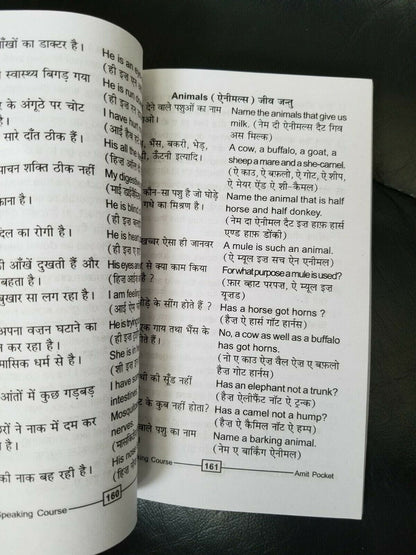 आँखों का डाक्टर है।
स्वास्थ्य बिगड़ गया
के अंगूठे पर चोट
सारे दाँत ठीक हैं।
पाचन शक्ति ठीक नहीं
काना है।
दिल का रोगी है।
की आँखें दुखती हैं और
बहता है।
बुखार सा लग रहा है।
अपना वज़न घटाने का
न कर रहा है।
मासिक धर्म से है।
आंतों में कुछ गड़बड़
छरों ने नाक में दम कर
है।
की नाक बह रही है।
He is an
(ही इज़
He is run
(ही इज़
I have hurt
(आई हैव
His all the
(हिज़ ऑल
My digestive
(माई
He is blind
(ही इज़
He is
(ही इज़
His eyes
(हिज़
I am feeling
(आई ऐम
He is trying
(ही इज़
She is in
(शी इज़
I have some
intestines
Mosquitoes
nerves
His nose
Speaking Course
160
Animals (ऐनीमल्स) जीव जन्तु
देने वाले पशुओं का नाम
Name the animals that give us
milk. (नेम दी ऐनीमल्स दैट गिव
अस मिल्क)
भैंस, बकरी, भेड़,
ऊँटनी इत्यादि।
A cow, a buffalo, a goat, a
sheep a mare and a she-carnel.
(ऐ काऊ, ऐ बफ़लो, ऐ गोट, ऐ शीप,
ऐ मेयर ऐंड ऐ शी-कैमल)
कौन-सा पशु है जो घोड़े
गधे का मिश्रण है।
Name the animal that is half
horse and half donkey.
(नेम दा ऐनीमल दैट इज़ हाफ़ हार्स
एण्ड हाफ़ डोंकी)
खच्चर ऐसा ही जानवर
A mule is such an animal.
(ऐ म्यूल इज़ सच ऐन एनीमल)
से क्या काम किया
For what purpose a mule is used?
(फ़ार व्हाट परपज़, ऐ म्यूल इज़
यूज़्ड)
घोड़े के सींग होते हैं ?
Has a horse got horns ?
(हैज़ ऐ हार्स गॉट हार्नस)
गाय तथा भैंस के
No, a cow as well as a buffalo
has got horns.
(नो ऐ काऊ ऐज़ वैल ऐज़ ए बफ़लो
हैज़ गॉट हार्नस)
की सूँड नहीं
Has an elephant not a trunk?
(हैज़ ऐलीफैंट नॉट ऐ ट्रन्क)
के कुब नहीं होता?
Has a camel not a hump?
(हैज़ ऐ कैमिल नॉट ऐ हम्प)
वाले पशु का नाम
Name a barking animal.
(नेम ए बार्किंग ऐनीमल)
king Course
161
Amit Pocket